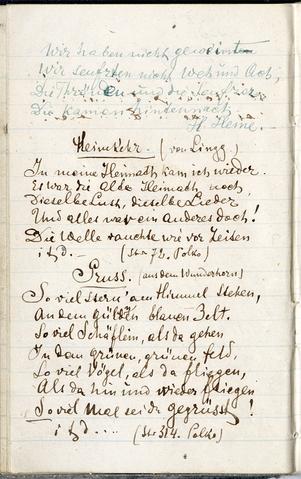 Wir haben nicht geweinet
Wir seufzten nicht, Weh und Ach,
Die Thränen und die Seufzer
Die kamen hindennach.
H. Heine.
Heimkehr. (von Lingg.)
In meine Heimath kam ich wieder
Es war die alte Heimath noch,
Dieselbe Lust, dieselbe Lieder
Und alles war ein anderes doch!
Die Welle rauchte wie vor Zeiten
i t d. — (Str 72. Polko)
Gruss. (aus dem Wunderhorn)
So viel Stern' am Himmel stehen,
An dem gülden blauen Zelt.
So viel Schäflein, als da gehen
In dem grünen, grünen Feld,
So viel Vögel, als da fliegen,
Als da hin und wieder fliegen
So viel mal sei da gegrüsst!
i t d.... (Str 314. Polko)